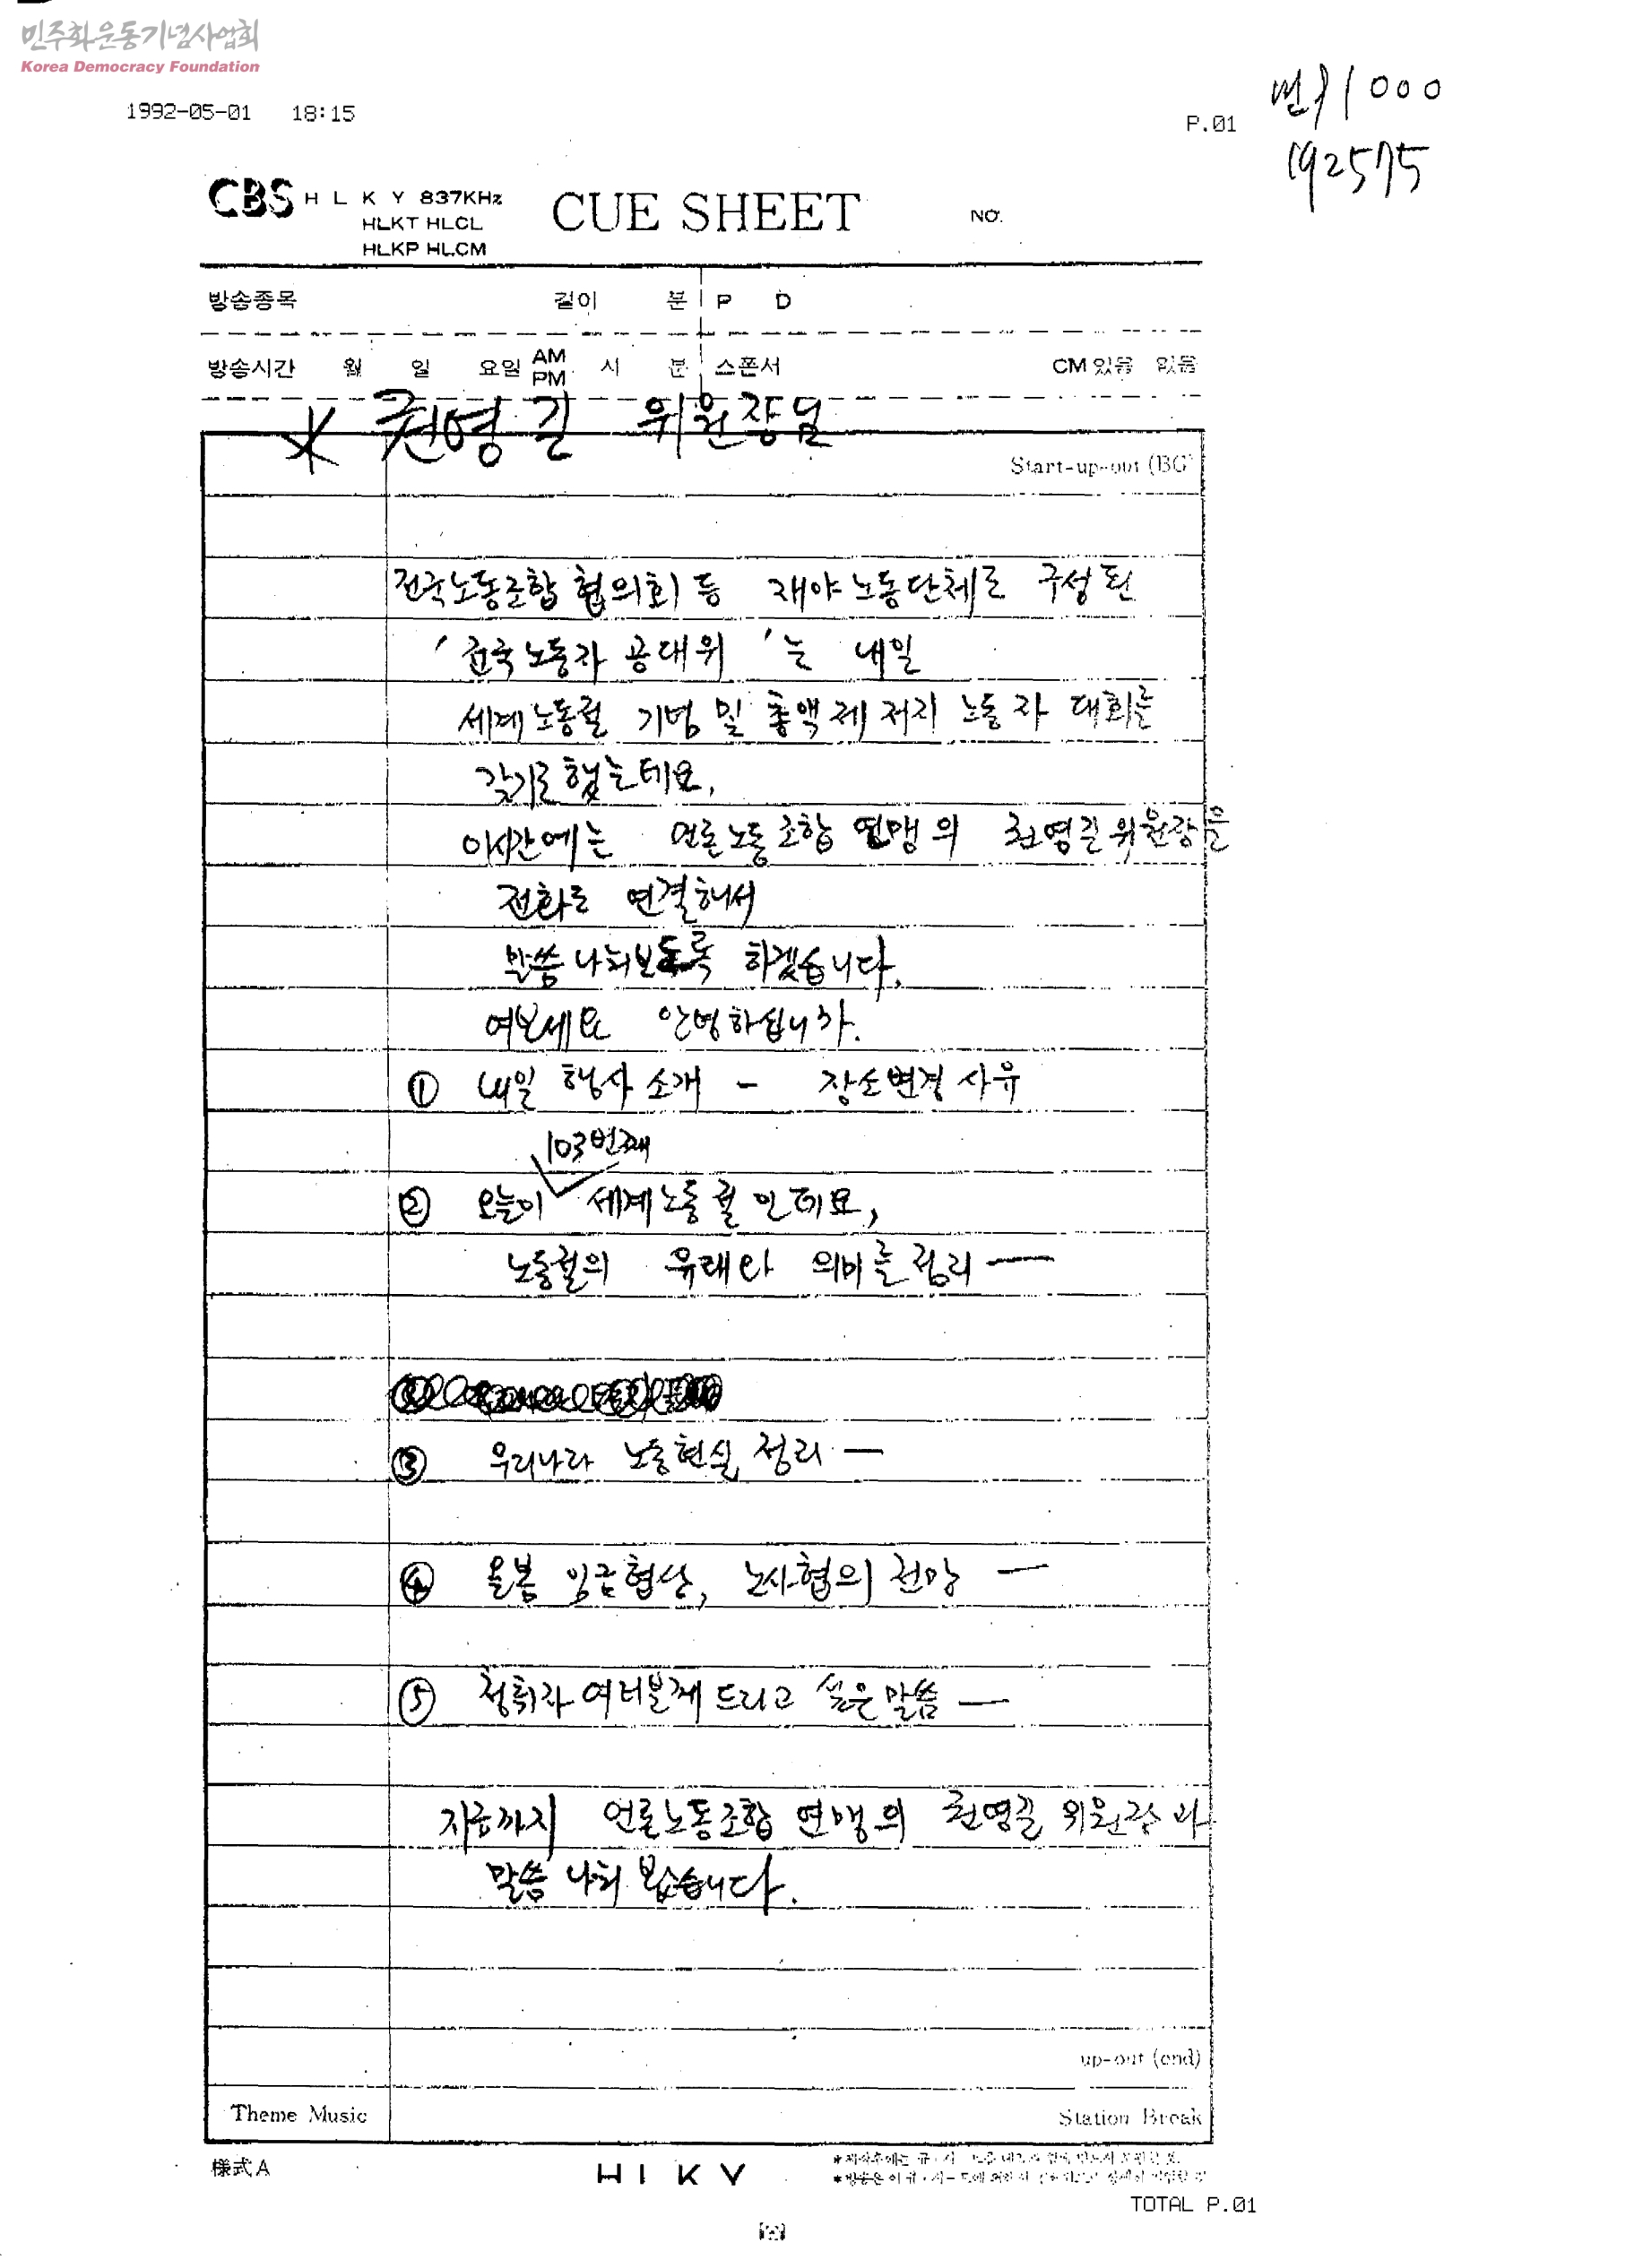 민주화운동기념사업회
Korea Democracy Foundation
1992-05-01 18:15
P.01
1000
192575
CBS H L K Y 837KHz
HLKT HLCL
HLKP HLCM
CUE SHEET
NO.
방송종목 길이 분 P D
방송시간 월 일 요일 AM PM 시 분 스폰서 CM 있음 없음
* 권영길 위원장님
Start-up-out (BG)
전국노동조합 협의회 등 재야 노동단체로 구성된
'전국 노동자 공대위'는 내일
세계노동절 기념 및 총액제 저지 노동자 대회를
갖기로 했는데요,
이시간에는 언론노동조합 연맹의 권영길 위원장을
전화로 연결해서
말씀 나눠보도록 하겠습니다.
여보세요 안녕하십니까.
① 내일 행사 소개 - 장소변경 사유
103번째
② 오늘이 세계노동절인데요,
노동절의 유래와 의미를 정리 —
③ 우리나라 노동현실 정리 —
④ 올봄 임금협상, 노사협의 전망 —
⑤ 청취자 여러분께 드리고 싶은 말씀 —
지금까지 언론노동조합 연맹의 권영길 위원장과
말씀 나눠 봤습니다.
up-out (end)
Theme Music
Station Break
様式A
H I K V
TOTAL P.01